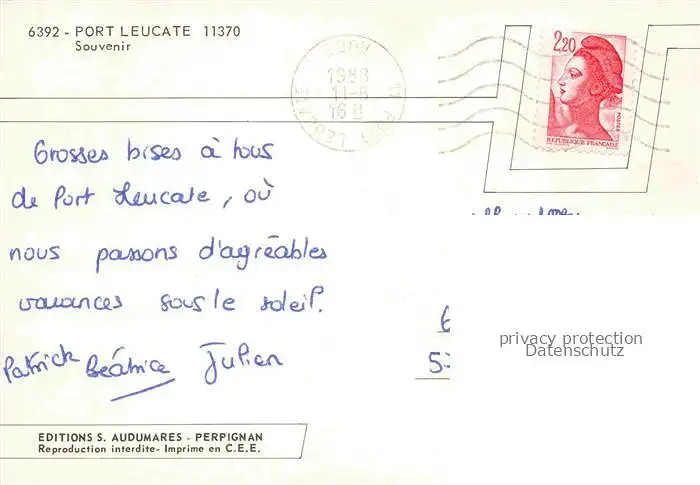 6392 - PORT LEUCATE 11370
Souvenir
1988
11-8
16 H
11 PORT LEUCATE
2,20
POSTES
REPUBLIQUE FRANÇAISE
Grosses bises à tous
de Port Leucate, où
nous passons d'agréables
vacances sous le soleil.
Patrick Béatrice Julien
privacy protection
Datenschutz
EDITIONS S. AUDUMARES - PERPIGNAN
Reproduction interdite- Imprime en C.E.E.